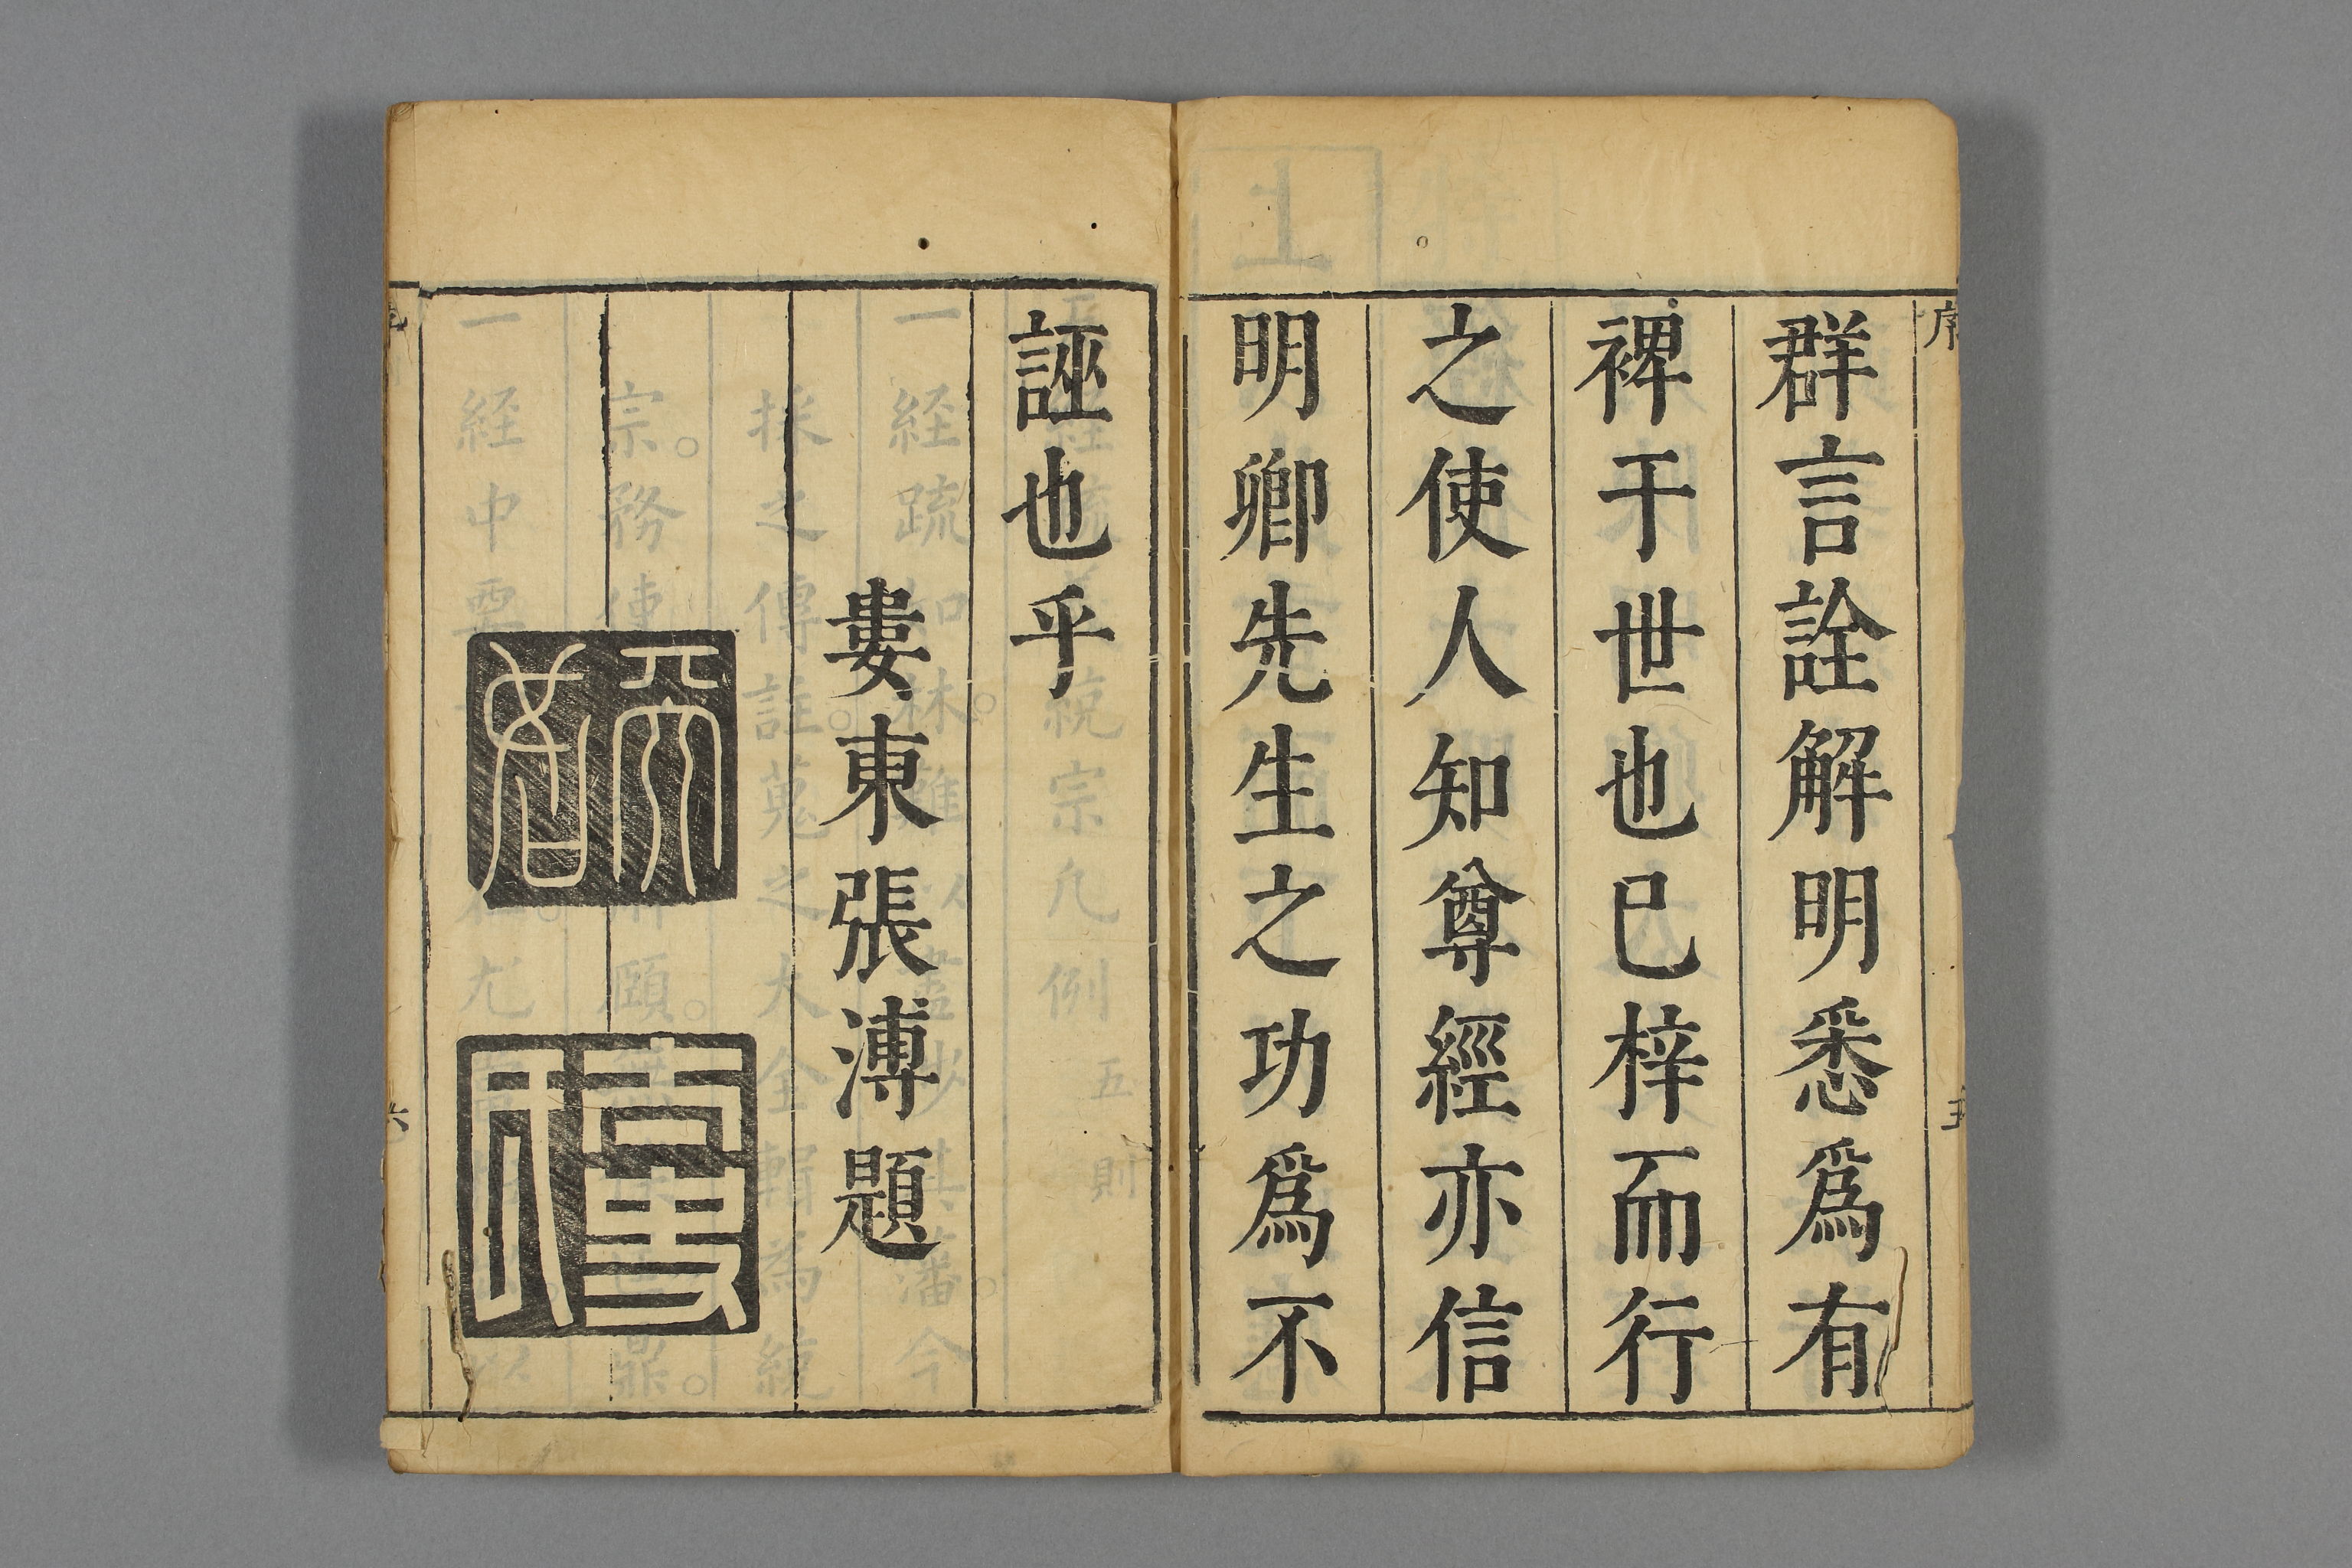 序
五
群言詮解明悉爲有
裨于世也已梓而行
之使人知尊經亦信
明卿先生之功爲不
誣也乎
婁東張溥題
天如
張溥